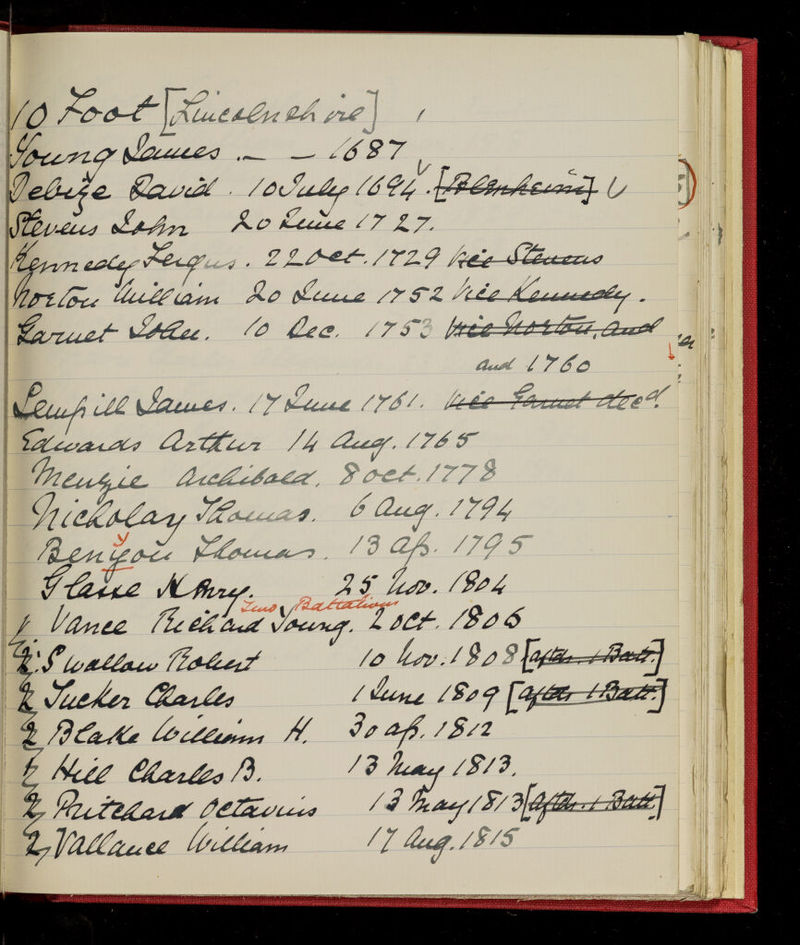 10 Foot [Lincolnshire]
Young James . — — 1687
Debize David . 10 July 1694 . [Blenheim]
Stevens John 20 June 1727.
Kennedy Fergus . 22 Oct. 1729 vice Stevens
Norton William 20 June 1752 vice Kennedy .
Garnet John. 10 Dec. 1753 vice Norton, and
and 1760
Sempill James. 17 June 1761. vice Garnet decd.
Edwards Arthur 14 Aug. 1765
Menzie Archibald. 8 Oct. 1778
Nicholay Thomas. 6 Aug. 1794
Benyon Thomas. 13 Ap. 1795
y
Glasse Henry. 25 Nov. 1804
Two Battalions
Vance Richard Young. 2 Oct. 1806
2 Swallow Robert 10 Nov. 1808 [aftds. 1 Batt.]
2 Tucker Charles 1 June 1809 [aftds 1 Batt.]
2 Blake William H. 30 Ap. 1812
Hill Charles B. 13 May 1813.
2 Pritchard Octavius 13 May 1813 [aftds. 1 Batt.]
2 Vallance William 17 Aug. 1815